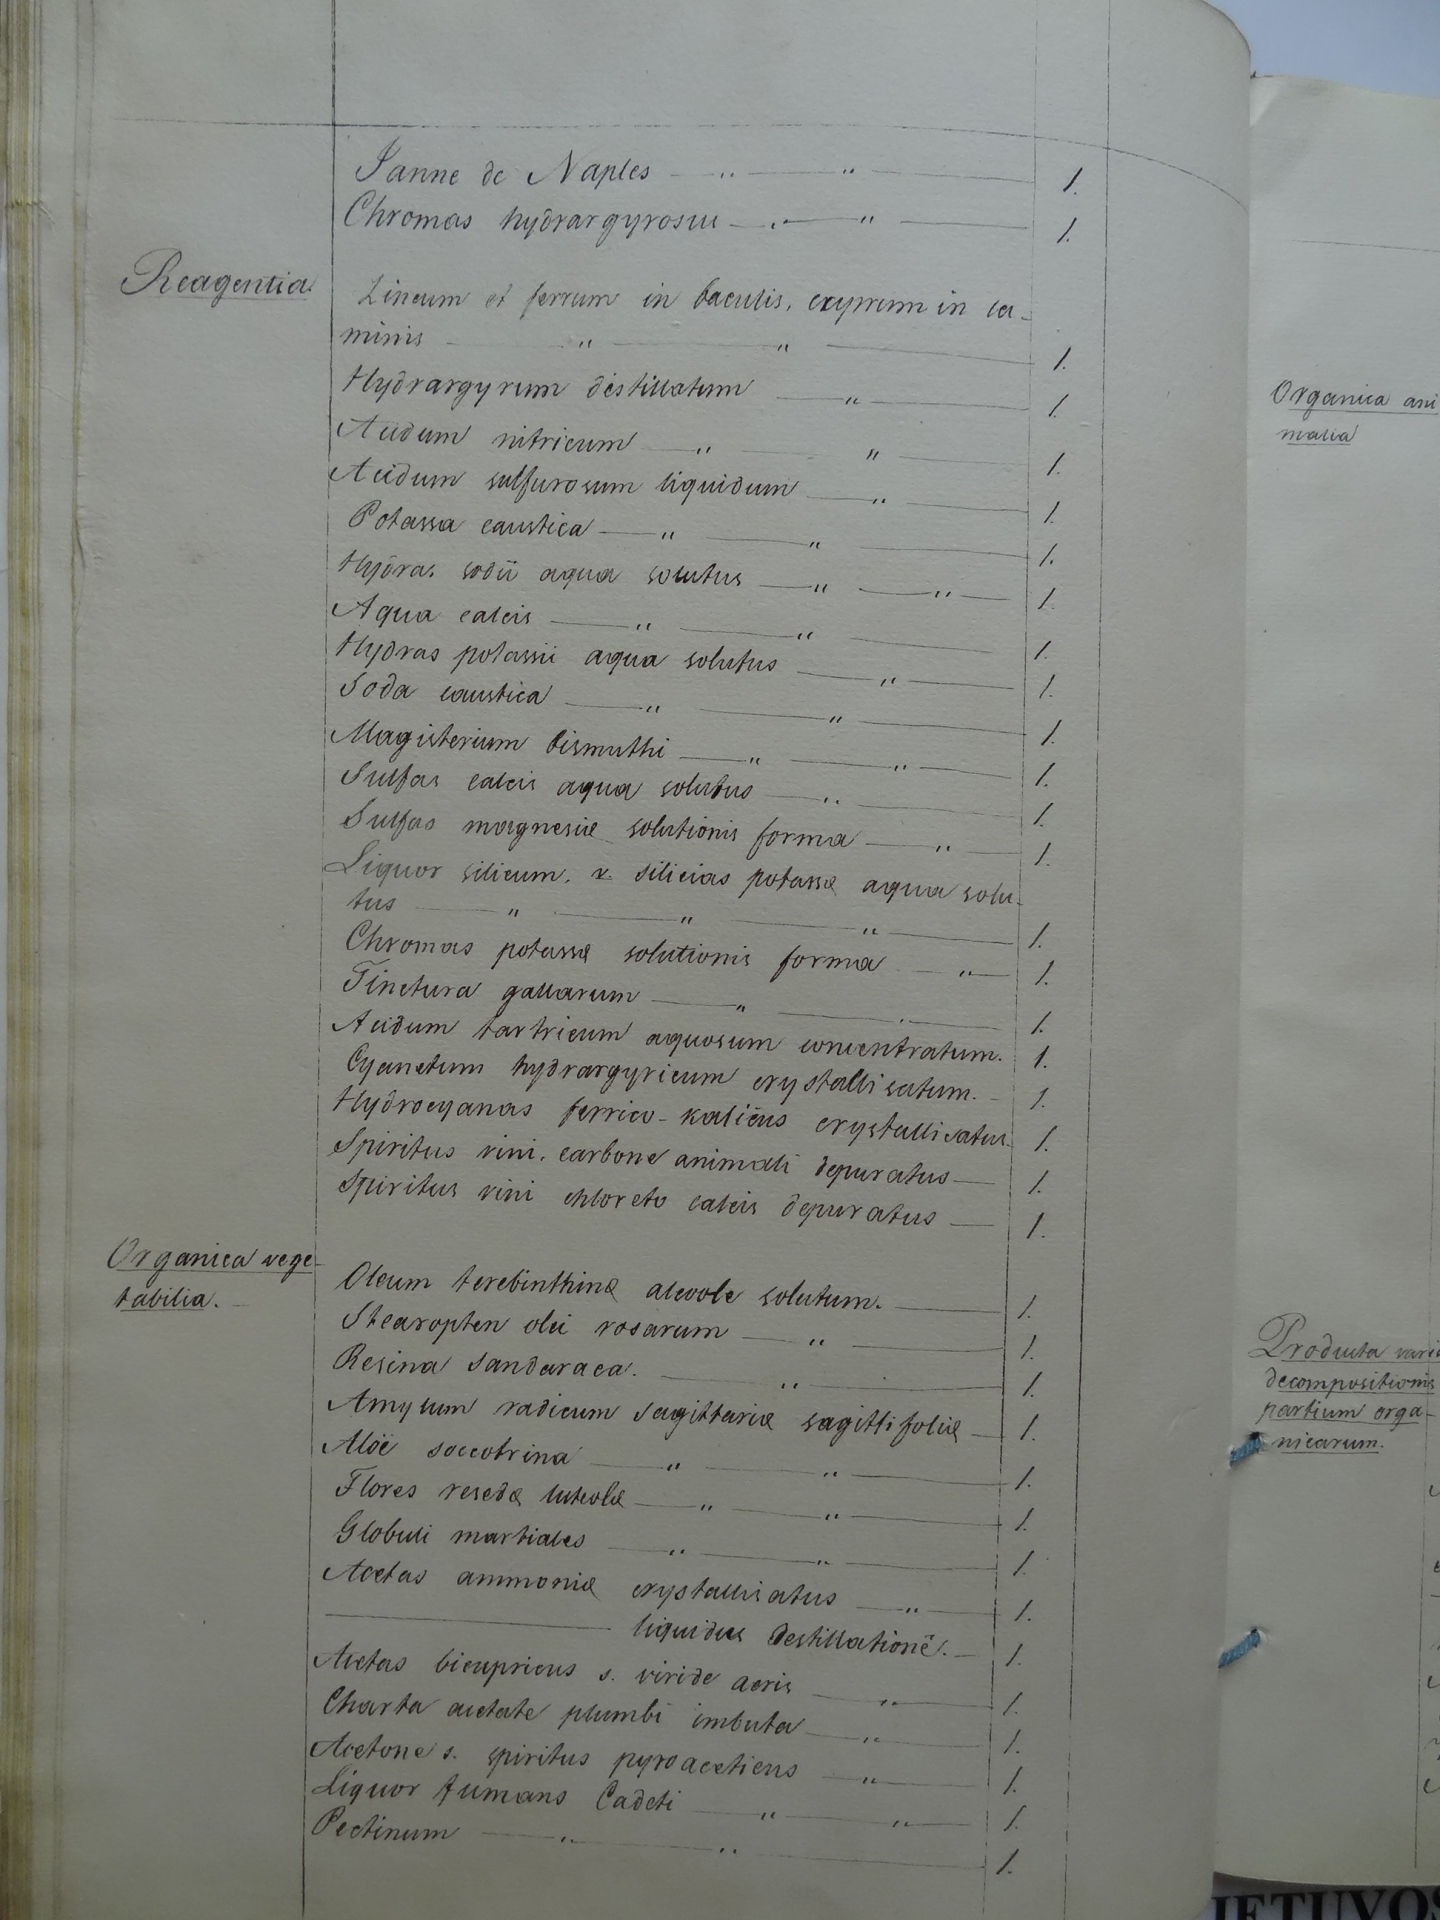 Janne de Naples — " — " — 1.
Chromas hydrargyrosus — " — " — 1.
Reagentia.
Zincum et ferrum in baculis, cuprum in la-
minis — " — " — 1.
Hydrargyrum destillatum — " — 1.
Acidum nitricum — " — " — 1.
Acidum sulfurosum liquidum — " — 1.
Potassa caustica — " — " — 1.
Hydras sodii aqua solutus — " — " — 1.
Aqua calcis — " — " — 1.
Hydras potassii aqua solutus — " — 1.
Soda caustica — " — " — 1.
Magisterium bismuthi — " — " — 1.
Sulfas calcis aqua solutus — " — 1.
Sulfas magnesiæ solutionis forma — " — 1.
Liquor silicum. v. silicias potassæ aqua solu-
tus — " — " — " — 1.
Chromas potassæ solutionis forma — " — 1.
Tinctura gallarum — " — 1.
Acidum tartricum aquosum concentratum. 1.
Cyanetum hydrargyricum crystallisatum. - 1.
Hydrocyanas ferrico-kalicus crystallisatus 1.
Spiritus vini, carbone animali depuratus — 1.
Spiritus vini chloreto calcis depuratus — 1.
Organica vege-
tabilia. -
Oleum terebinthinæ alcoole solutum. — 1.
Stearopten olei rosarum — " — 1.
Resina Sandaraca. — " — 1.
Amylum radicum sagittariæ sagittifoliæ — 1.
Aloë soccotrina — " — " — 1.
Flores resedæ luteolæ — " — " — 1.
Globuli martiales — " — " — 1.
Acetas ammoniæ crystallisatus — " — 1.
— liquidus destillatione. — 1.
Acetas bicupricus s. viride aeris — " — 1.
Charta acetate plumbi imbuta — " — 1.
Acetone s. spiritus pyroaceticus — " — 1.
Liquor fumans Cadeti — " — " — 1.
Pectinum — " — " — 1.
Organica ani
malia
Producta vari
decompositionis
partium orga-
nicarum.
IETUVOS